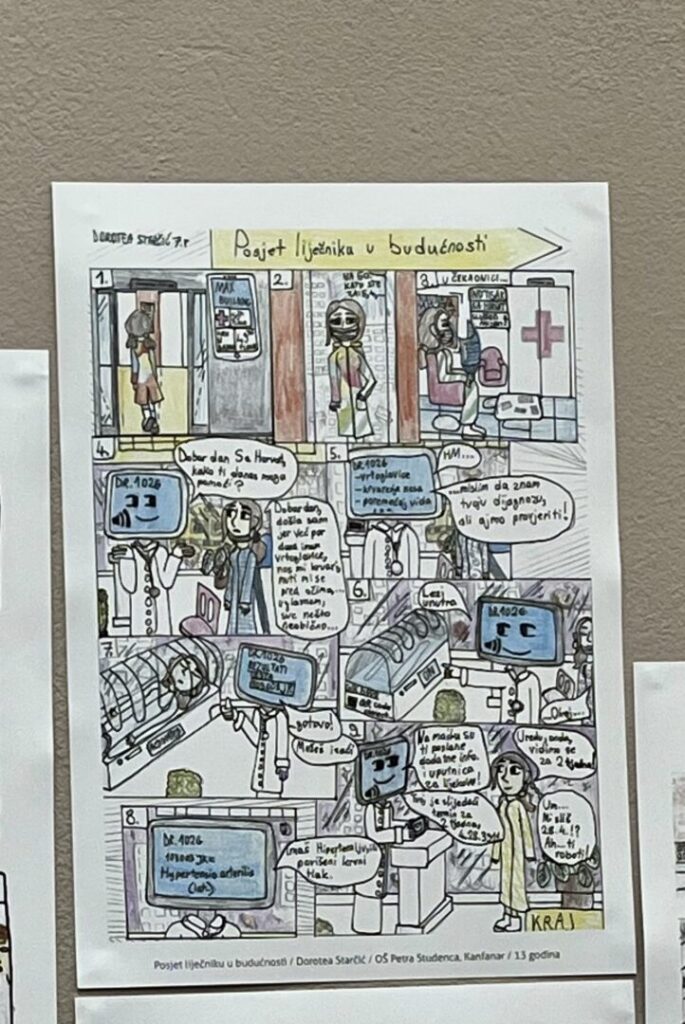 DOROTEA STARČIĆ 7.r
Posjet liječniku u budućnosti
1.
MAX
2.
3.
U ČEKAONICI...
4.
Dobar dan
kako ti danas mogu
pomoći?
DR. 1026
Dobar dan,
došla sam
jer već par
dana imam
vrtoglavice,
nos mi krvari,
muti mi se
pred očima...
uglavnom,
sve nešto
neobično...
5.
DR. 1026
-vrtoglavice
-krvarenje nosa
-poremećaj vida
HM...
...mislim da znam
tvoju dijagnozu,
ali ajmo provjeriti!
6.
Lezi
unutra
DR. 1026
Okej...
7.
DR. 1026
REZULTATI
Gotovo!
Možeš izaći
8.
DR. 1026
Hypertensio arterialis
(lat.)
Imaš
povišeni krvni
tlak.
9.
Na mailu su
ti poslane
dodatne info.
i uputnica
za lijekove!
termin za
2 tjedna,
Uredu, onda,
vidimo se
za 2 tjedna!
Um...
Misliš
28.4.!?
Ah... ti
roboti!
KRAJ
Posjet liječniku u budućnosti / Dorotea Starčić / OŠ Petra Studenca, Kanfanar / 13 godina